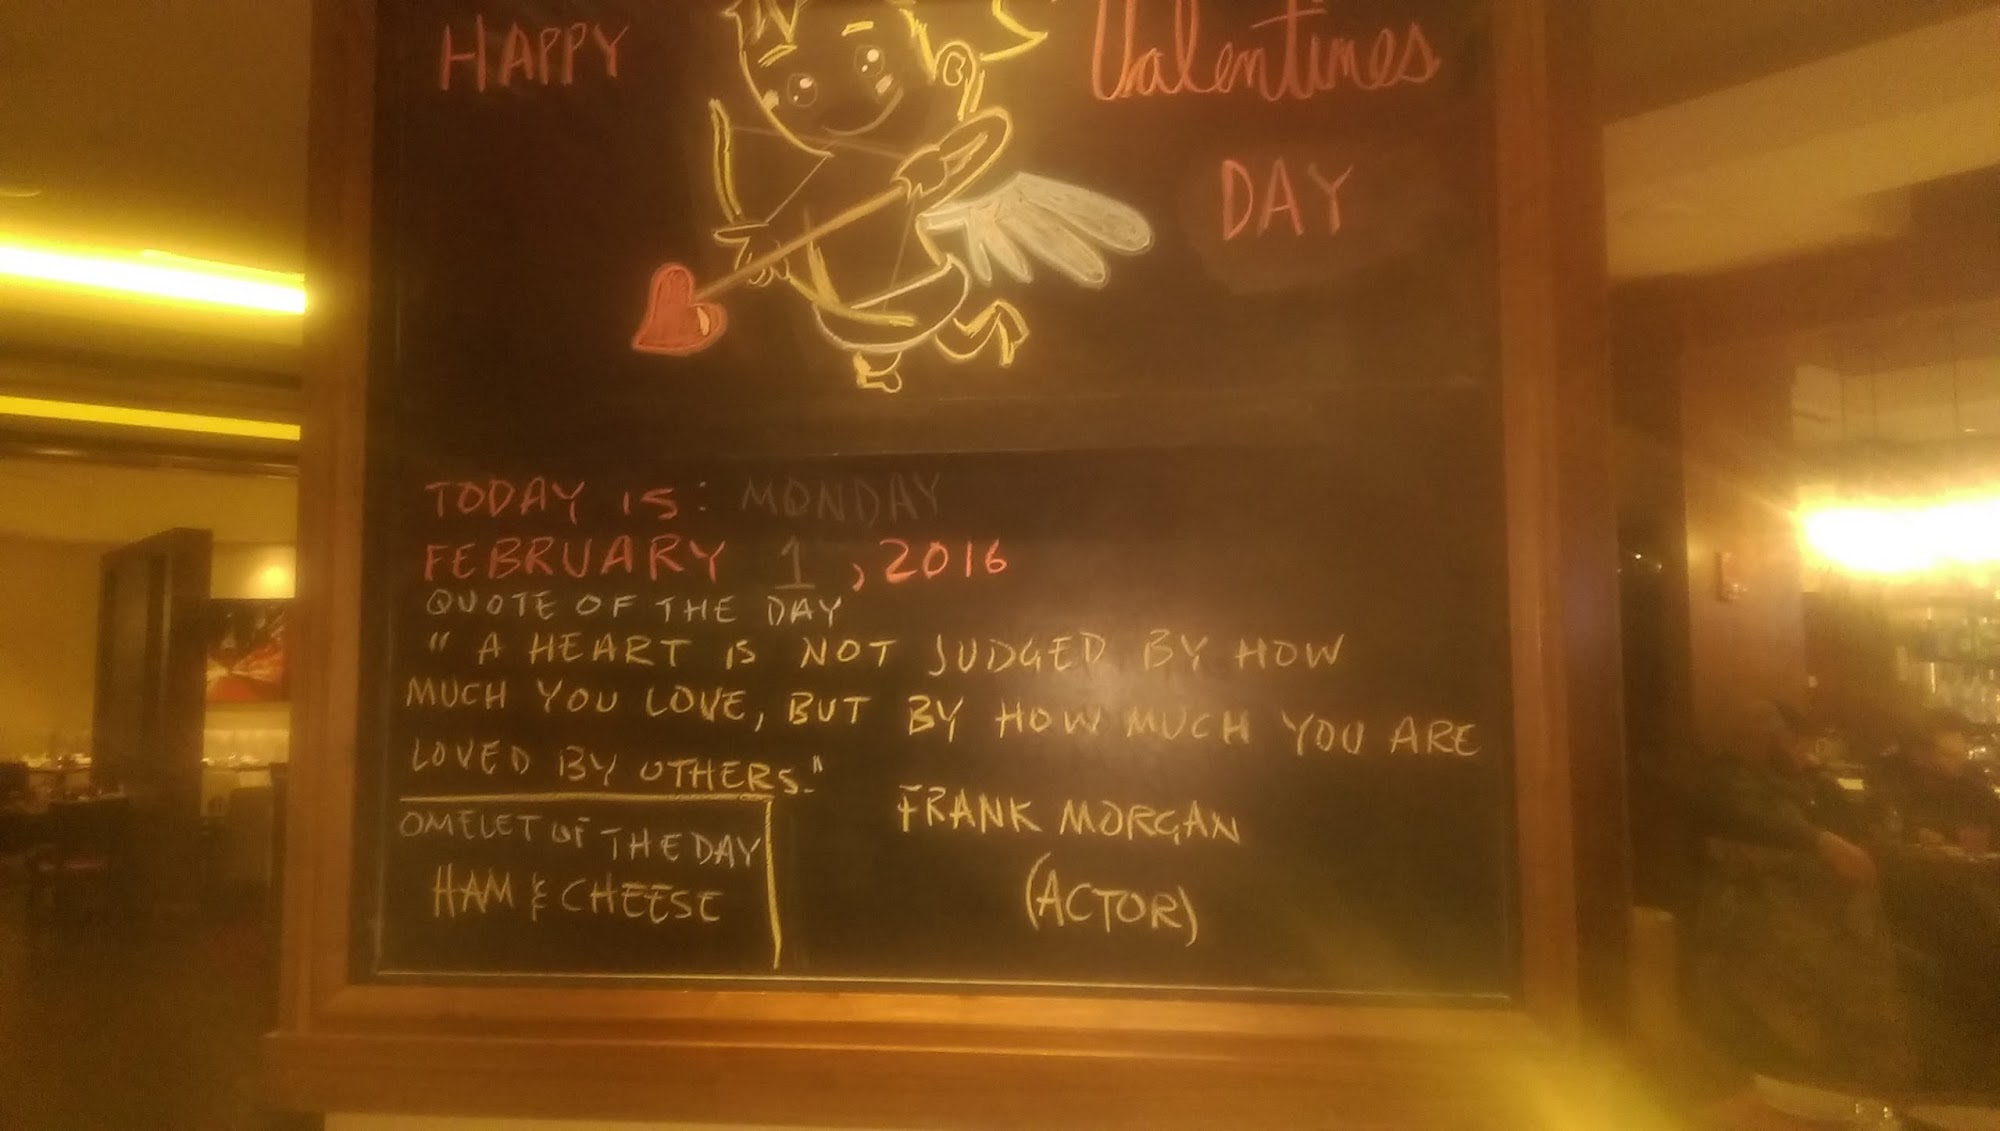 HAPPY
Valentines
DAY
TODAY IS: MONDAY
FEBRUARY 1, 2016
QUOTE OF THE DAY
" A HEART IS NOT JUDGED BY HOW
MUCH YOU LOVE, BUT BY HOW MUCH YOU ARE
LOVED BY OTHERS."
FRANK MORGAN
(ACTOR)
OMELET OF THE DAY
HAM & CHEESE